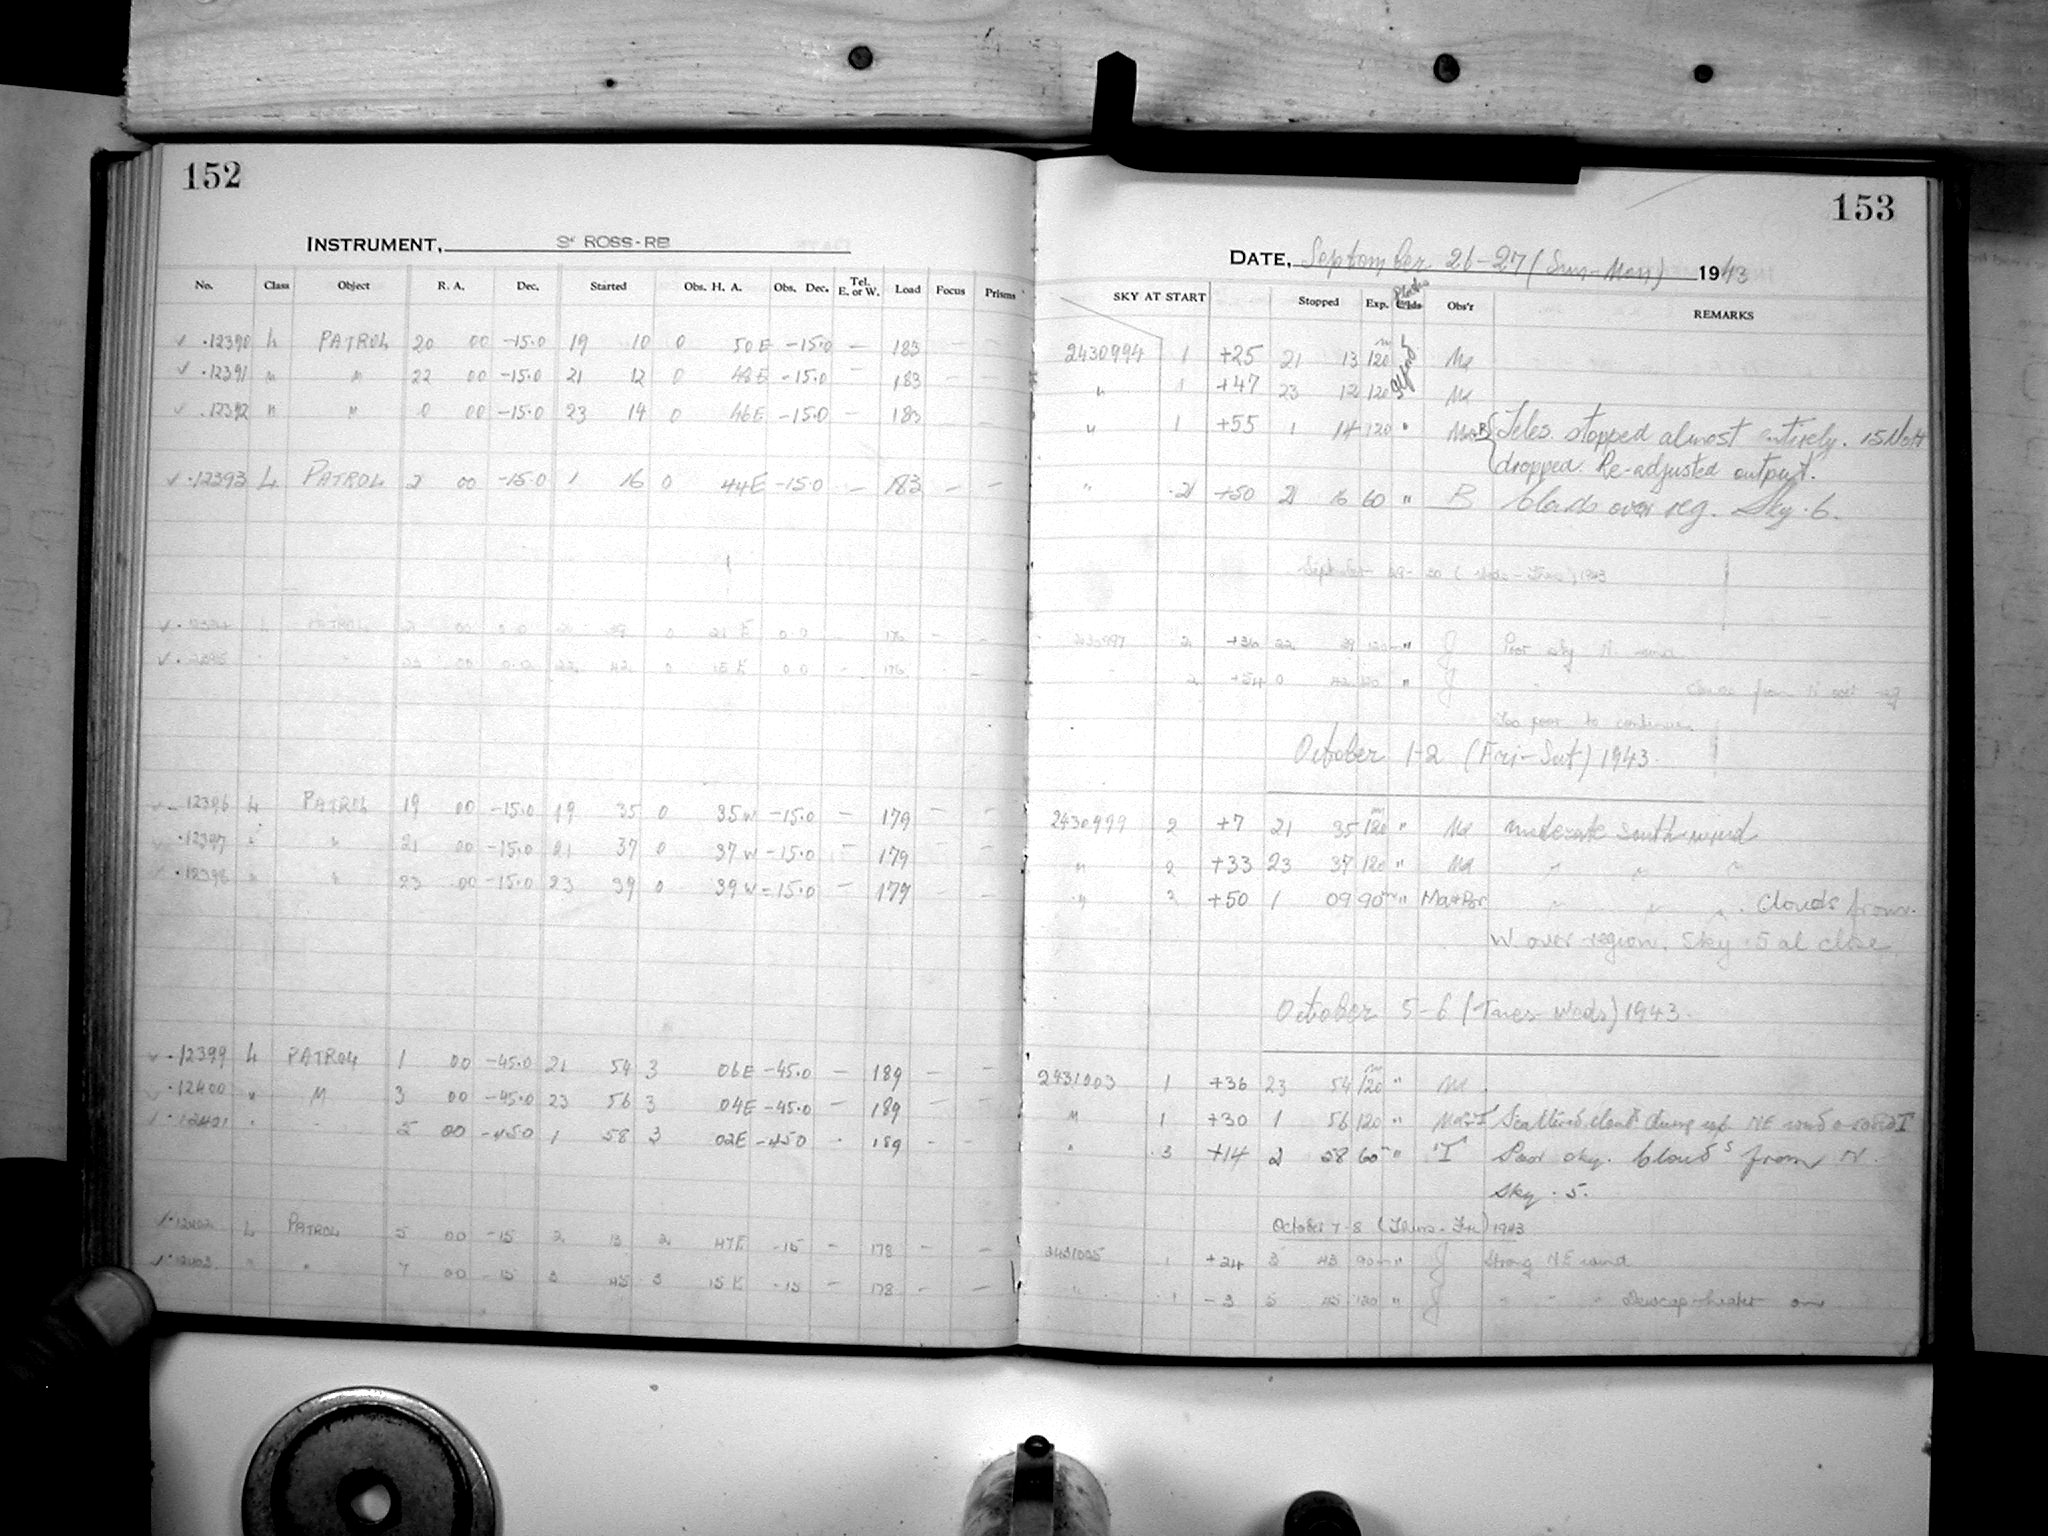 152
INSTRUMENT, 3" ROSS-RB
No. Class Object R. A. Dec. Started Obs. H. A. Obs. Dec. Tel. E. or W. Load Focus Prisms
✓ .12390 L PATROL 20 00 -15.0 19 10 0 50E -15.0 — 183 — —
✓ .12391 " " 22 00 -15.0 21 12 0 48E -15.0 — 183
✓ .12392 " " 0 00 -15.0 23 14 0 46E -15.0 — 183
✓ .12393 L PATROL 2 00 -15.0 1 16 0 44E -15.0 — 183 — —
✓ . L PATROL 00 0.0 0 21 E 0 0 — 176 — —
✓ . 00 0.0 22 42 0 15 E 0 0 — 176 —
✓ 12396 L PATROL 19 00 -15.0 19 35 0 35W -15.0 — 179 — —
✓ .12397 " " 21 00 -15.0 21 37 0 37W -15.0 — 179 — —
✓ .12398 " " 23 00 -15.0 23 39 0 39W -15.0 — 179 —
✓ .12399 L PATROL 1 00 -45.0 21 54 3 06E -45.0 — 189 — —
✓ .12400 " " 3 00 -45.0 23 56 3 04E -45.0 — 189 — —
✓ .12401 " " 5 00 -45.0 1 58 3 02E -45.0 . 189 — —
✓ .12402 L PATROL 5 00 -15 2 13 2 47E -15 — 178 — —
✓ .12403 " " 7 00 -15 3 45 3 15 E -15 — 178 — —
153
DATE, September 26-27 (Sun-Mon) 1943
SKY AT START Stopped Exp. Plates Obs'r REMARKS
2430994 1 +25 21 13 120m Ma
" 1 +47 23 12 120 Ma
" 1 +55 1 14 120 " Teles. stopped almost entirely. 15
dropped. Re-adjusted output.
" 2 +50 2 16 60 " B Clouds over reg. Sky .6.
September 29-30 ( - ) 1943
2430997 2 +36 22 29 120m " J Poor sky N. wind
2 +54 0 42 120 " J " Clouds from N over reg
Too poor to continue.
October 1-2 (Fri-Sat) 1943.
2430999 2 +7 21 35 120m " Ma moderate South wind
" 2 +33 23 37 120 " Ma " " "
" 3 +50 1 09 90m " Ma+Por " " " . Clouds from
W. over region. Sky .5 at close
October 5-6 (Tues-Weds) 1943.
2431003 1 +36 23 54 120m " Ma
" 1 +30 1 56 120 " Ma+T Scattered clouds NE wind
" 3 +14 2 58 60m " T Poor sky. Clouds from N.
Sky .5.
October 7-8 (Thurs-Fri) 1943
2431005 1 +24 3 43 90m " J Strong NE wind
" 1 -3 5 45 120 " J " " " Dewcap-heater on